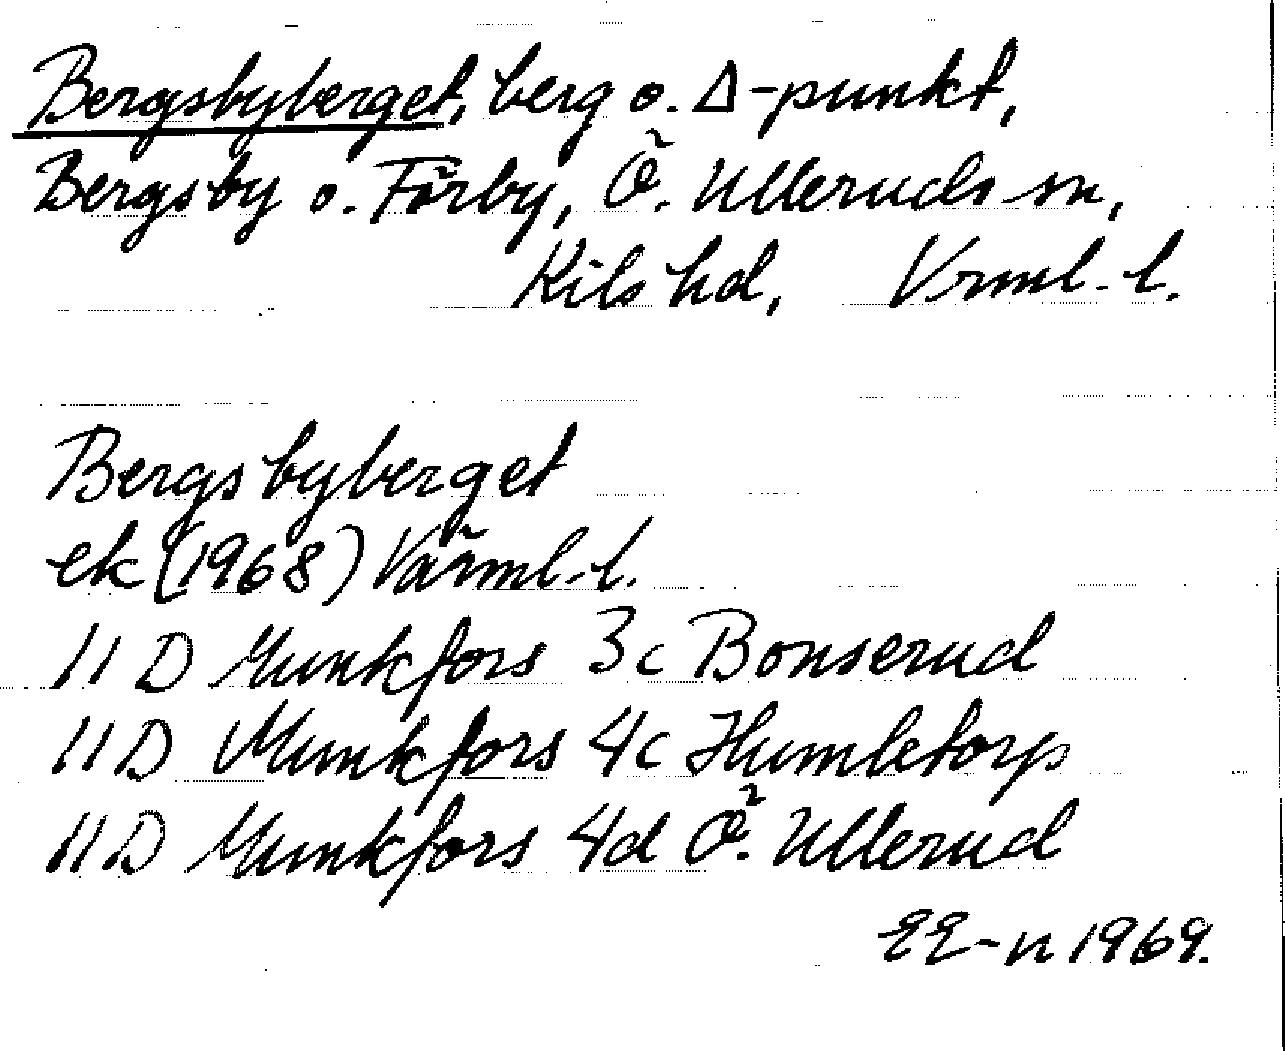 Bergsbyberget, berg o. Δ-punkt,
Bergsby o. Färby, Ö. Ulleruds sn,
Kils hd, Vrml. l.
Bergsbyberget
ek (1968) Värml. l.
11 D Munkfors 3c Bonserud
11 D Munkfors 4c Humletorp
11 D Munkfors 4d Ö. Ullerud
EE-n 1969.